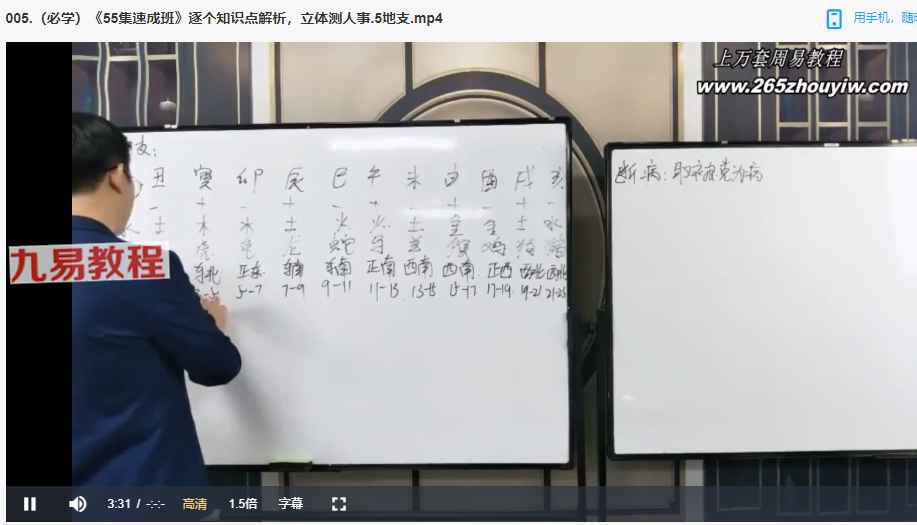 005.（必学）《55集速成班》逐个知识点解析，立体测人事.5地支.mp4
用手机，随
上万套周易教程
www.265zhouyiw.com
支：
丑 寅 卯 辰 巳 午 未 申 酉 戌 亥
- + - + - + - + - + -
土 木 木 土 火 火 土 金 金 土 水
虎 龙 蛇 羊 猴 鸡 猪
东北 正东 东南 东南 正南 西南 西南 正西 西北 西北
5-7 7-9 9-11 11-13 13-15 15-17 17-19 19-21 21-23
断病：
为病
九易教程
3:31 / -:-:- 高清 1.5倍 字幕